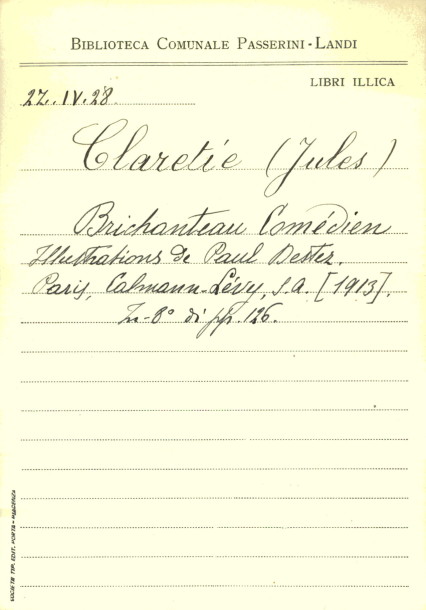 BIBLIOTECA COMUNALE PASSERINI-LANDI
LIBRI ILLICA
22.IV.28.
Claretie (Jules)
Brichanteau Comédien
Illustrations de Paul Destez.
Paris, Calmann-Lévy, s.a. [1913].
In-8° di pp. 126.
SOCIETÀ TIP. EDIT. PORTA - PIACENZA